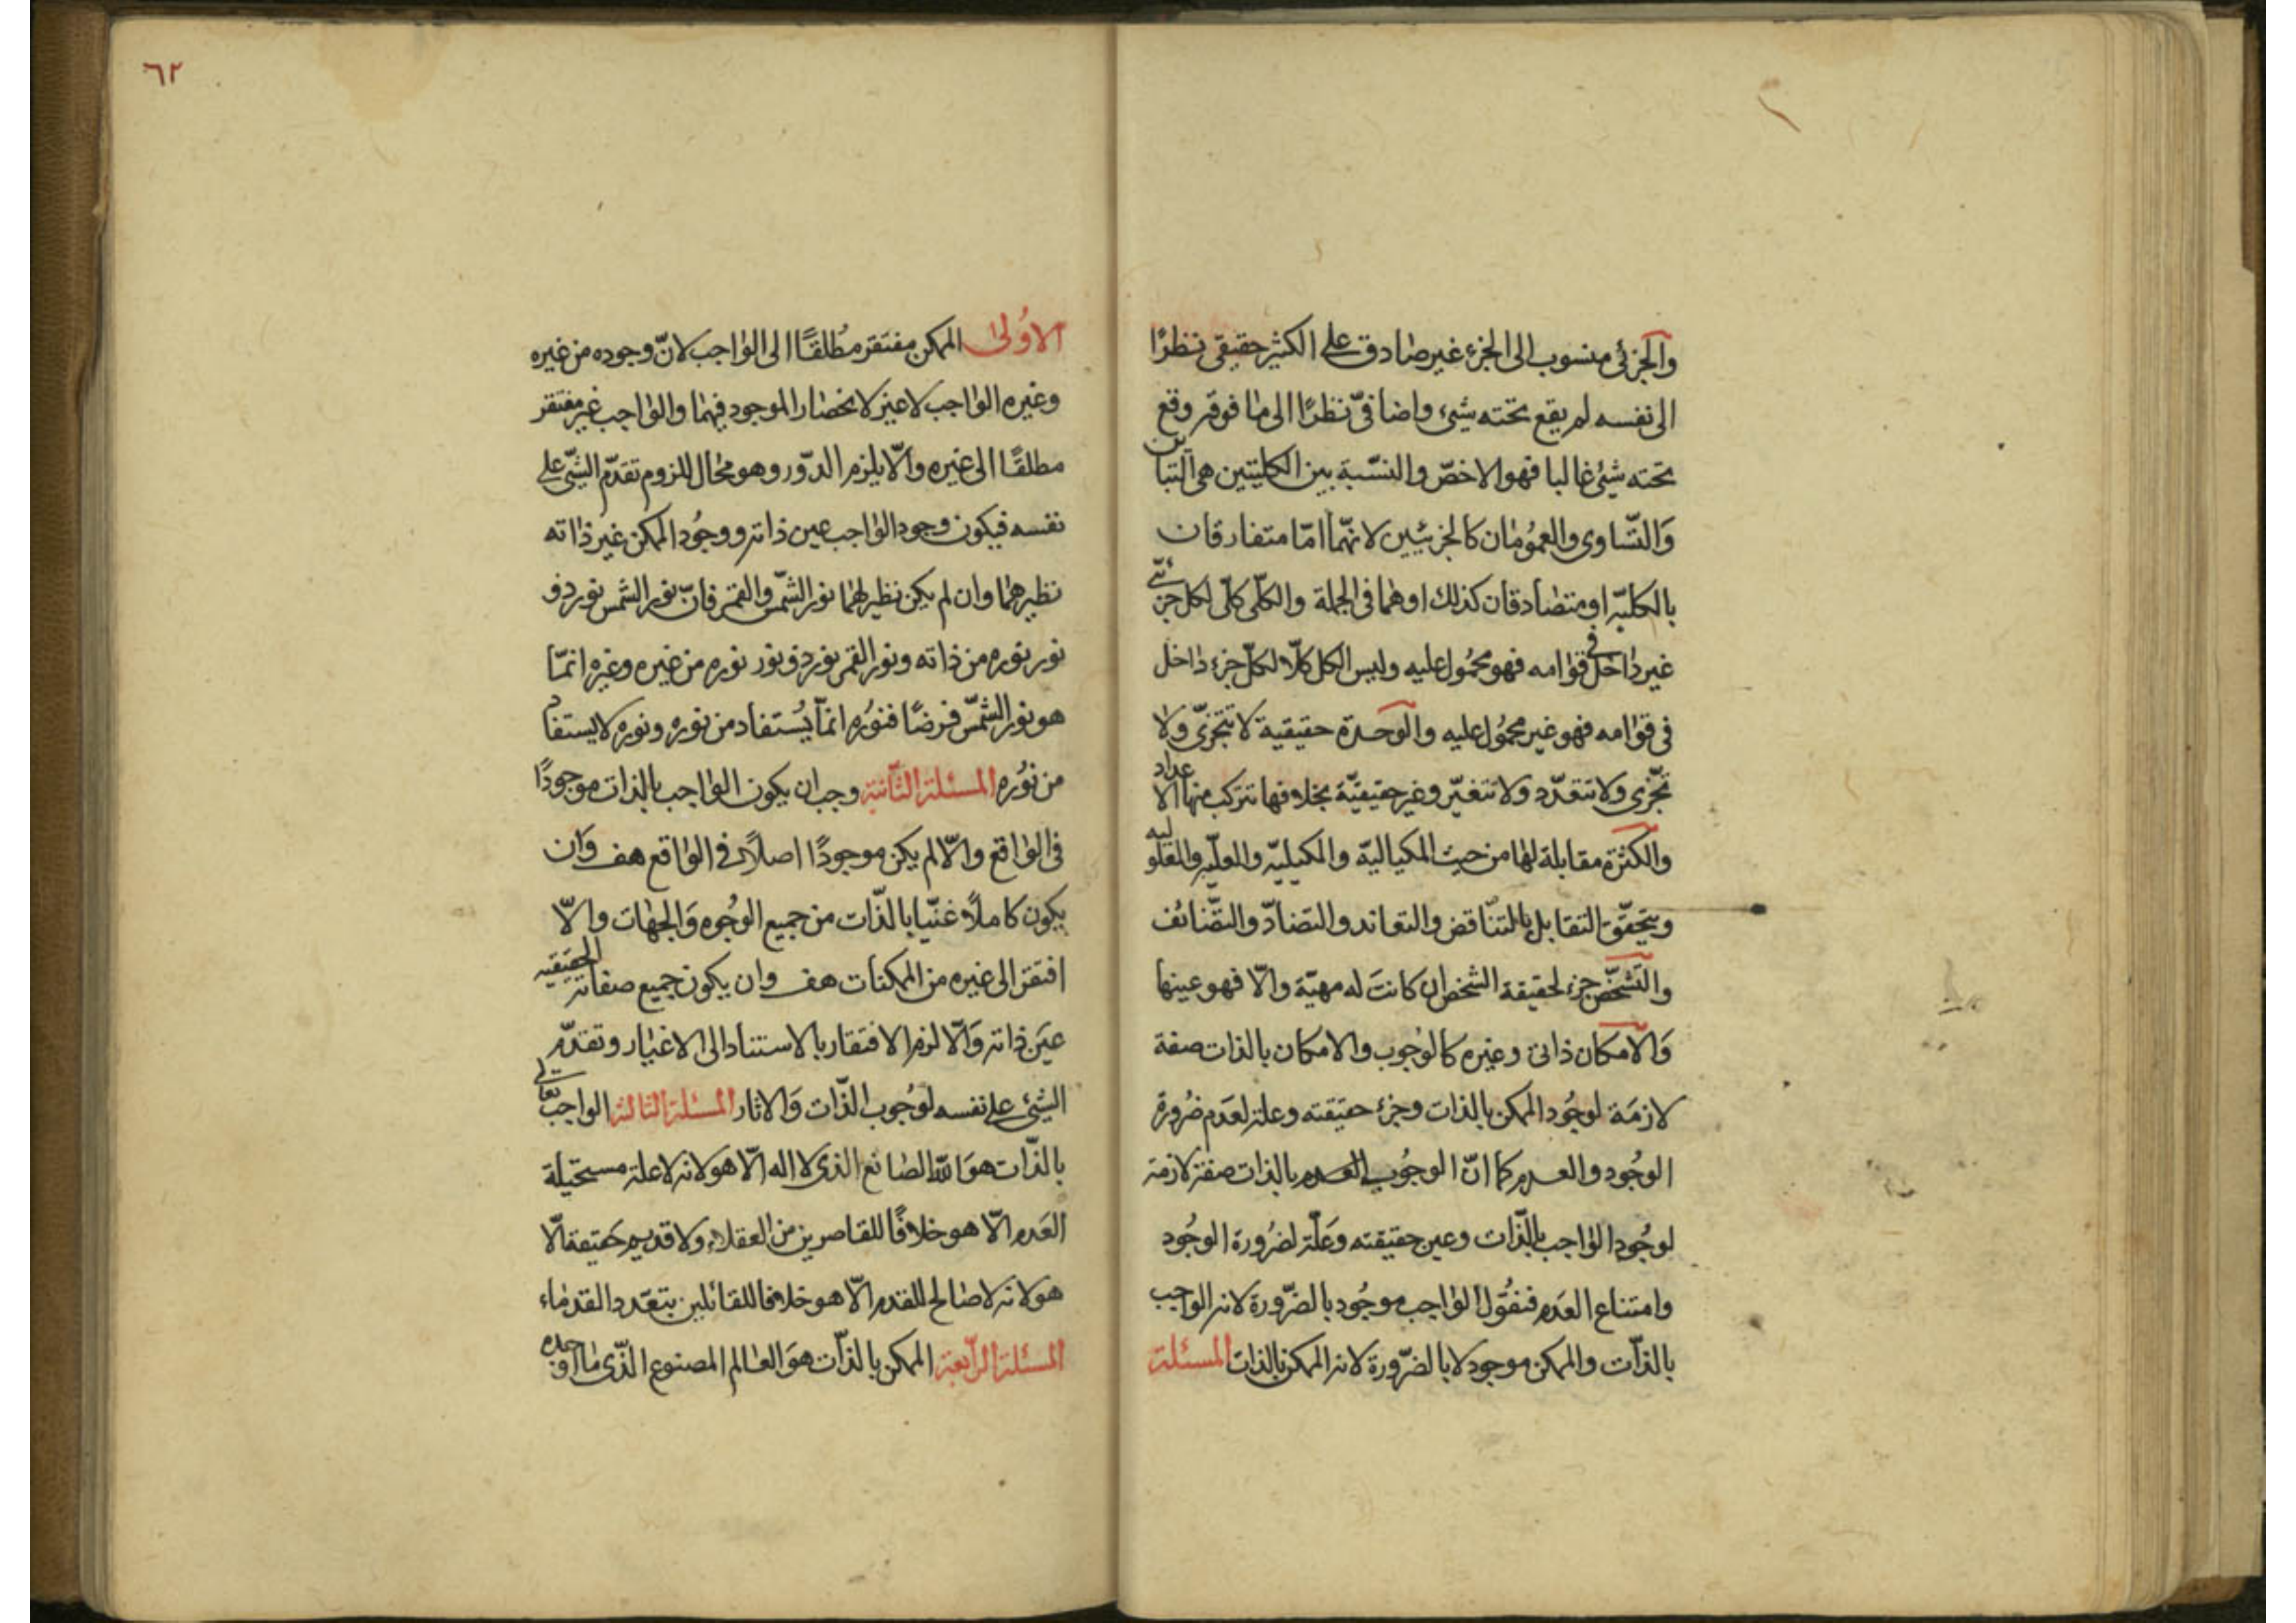 والجزئي منسوب الى الجزء غير صادق على الكثير حقيقي نظرًا
الى نفسه لم يقع تحته شيء واضافيّ نظرًا الى ما فوقه وقع
تحته شيئ غالبا فهو الاخصّ والنسّبة بين الكليتين هى التباين
وَالتّساوى والعمُومان كالجزئيين لانّهما امّا متفارقان
بالكليّه او متصادقان كذلك او هما فى الجملة والكلّى كلّى لكل جزئى
غير داخل فى قوامه فهو محمُول عليه وليس الكل كلّا لكلّ جزء داخل
فى قوامه فهو غير محمُول عليه والوَحدة حقيقية لا تتجزّى ولا
تجّزى ولا تتعّدد ولا تتغيّر وغير حقيقيّة بخلافها تتركب منها الاعداد
والكثرة مقابلة لها من حيث المكياليّة والمكيليّه والعلّيه والمعلوليه
ويتحقّق التقابل بالتنّاقض والتعاند والتضادّ والتّضائف
والتّشخّص جزء لحقيقة الشخص ان كانت له مهيّة والّا فهو عينها
وَالامكان ذاتى وغيره كالوجوب والامكان بالذات صفة
لازمَة لوجُود الممكن بالذات وجزء حقيقته وعلة لعدَم ضرُورة
الوجُود والعدم كما انّ الوجُوب بالذات صفة لازمة
لوجُود الواجب بالذّات وعين حقيقته وَعلّة لضرُورة الوجُود
وامتناع العدَم فنقُول الواجب موجُود بالضرّورة لانه الواجب
بالذّات والممكن موجود لا بالضرّورة لانه الممكن بالذات المسئلة
٦٢
الاوُلى الممكن مفتقر مُطلقًا الى الواجب لانّ وجوده من غيره
وغيره الواجب لا غير لانحصار الموجود فيهما والواجب غير مفتقر
مطلقًا الى غيره والّا يلزم الدّور وهو محال للزوم تقدّم الشئ على
نفسه فيكون وجود الواجب عين ذاته ووجُود الممكن غير ذاته
نظيرهما وان لم يكن نظير لهما نور الشمّس والقمر فانّ نور الشمس نور ذو
نور نوره من ذاته ونور القمر نور ذو نور نوره من غيره وغيره انمّا
هو نور الشمّس فرضًا فنوُره انمّا يُستفاد من نوره ونوره لا يستفاد
من نوُره المسئلة الثّانية وجب ان يكون الواجب بالذات موجودًا
فى الواقع والّا لم يكن موجودًا اصلًا فى الواقع هف وَان
يكون كاملًا غنيّا بالذّات من جميع الوجُوه وَالجهات والّا
افتقر الى غيره من الممكنات هف وان يكون جميع صفاته الحقيقيه
عيَن ذاته وَالّا لزم الافتقار بالاستناد الى الاغيار وتقدّم
الشئ على نفسه لوجُوب الذّات وَالاثار المسئلة الثالثة الواجب تعالى
بالذّات هوَ الله الصانع الذى لا اله الّا هو لانه لا علة مستحيلة
العدَم الّا هو خلافًا للقاصرين من العقلاء ولا قديم حَقيقة الّا
هو لانه لا صالح للقدم الّا هو خلافا للقائلين بتعّدد القدماء
المسئلة الرّابعة الممكن بالذّات هوَ العالم المصنوع الذّى ما اوجده